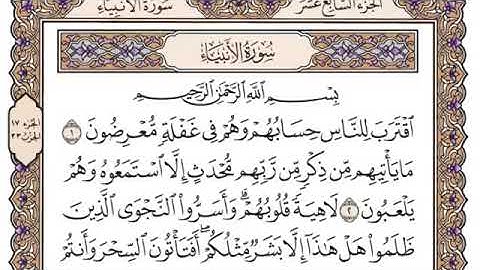 الجزء السابع عشر
سورة الأنبياء
سُورَةُ الأَنبِيَاءِ
بِسْمِ اللَّهِ الرَّحْمَٰنِ الرَّحِيمِ
ٱقۡتَرَبَ لِلنَّاسِ حِسَابُهُمۡ وَهُمۡ فِي غَفۡلَةٖ مُّعۡرِضُونَ ١
مَا يَأۡتِيهِم مِّن ذِكۡرٖ مِّن رَّبِّهِم مُّحۡدَثٍ إِلَّا ٱسۡتَمَعُوهُ وَهُمۡ
يَلۡعَبُونَ ٢ لَاهِيَةٗ قُلُوبُهُمۡۗ وَأَسَرُّواْ ٱلنَّجۡوَى ٱلَّذِينَ
ظَلَمُواْ هَلۡ هَٰذَآ إِلَّا بَشَرٞ مِّثۡلُكُمۡۖ أَفَتَأۡتُونَ ٱلسِّحۡرَ وَأَنتُمۡ
الجزء ١٧
الحزب ٣٣